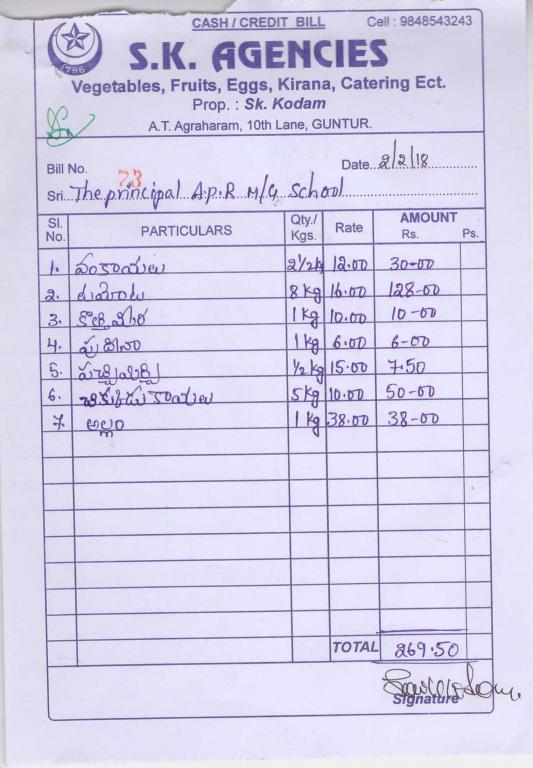 CASH / CREDIT BILL Cell : 9848543243
1786
S.K. AGENCIES
Vegetables, Fruits, Eggs, Kirana, Catering Ect.
Prop. : Sk. Kodam
A.T. Agraharam, 10th Lane, GUNTUR.
Bill No. 73 Date 2/2/18
Sri. The principal A.P.R M/G School
Sl. No. PARTICULARS Qty./ Kgs. Rate AMOUNT Rs. Ps.
1. వంకాయలు 2 1/2 kg 12.00 30-00
2. టమోటు 8 kg 16.00 128-00
3. కొత్తిమీర 1 kg 10.00 10-00
4. పుదీనా 1 kg 6.00 6-00
5. పచ్చిమిర్చి 1/2 kg 15.00 7.50
6. చిక్కుడు కాయలు 5 kg 10.00 50-00
7. అల్లం 1 kg 38.00 38-00
TOTAL 269.50
Signature